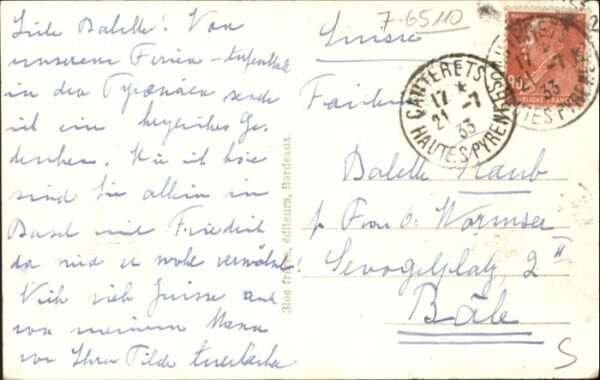 7-65110
Liebe Babette! Von
unserem Ferien-Aufenthalt
in den Pyrenäen sende
ich ein herzliches Ge-
denken. Wie ich höre
sind Sie allein in
Basel mit Friedrich
da wird er wohl verwöhnt!
Viele Grüsse auch
von meinem Mann
von Ihrer Tilde
Bloc frères, éditeurs, Bordeaux.
Suisse
Babette Raub
p. Frau O. Wormser
Sevogelplatz, 2 II
Bâle
CAUTERETS
17 *
21 -7
33
HAUTES-PYRENEES
CAUTERETS
17
-7
33
HAUTES-PYRENEES
90
S